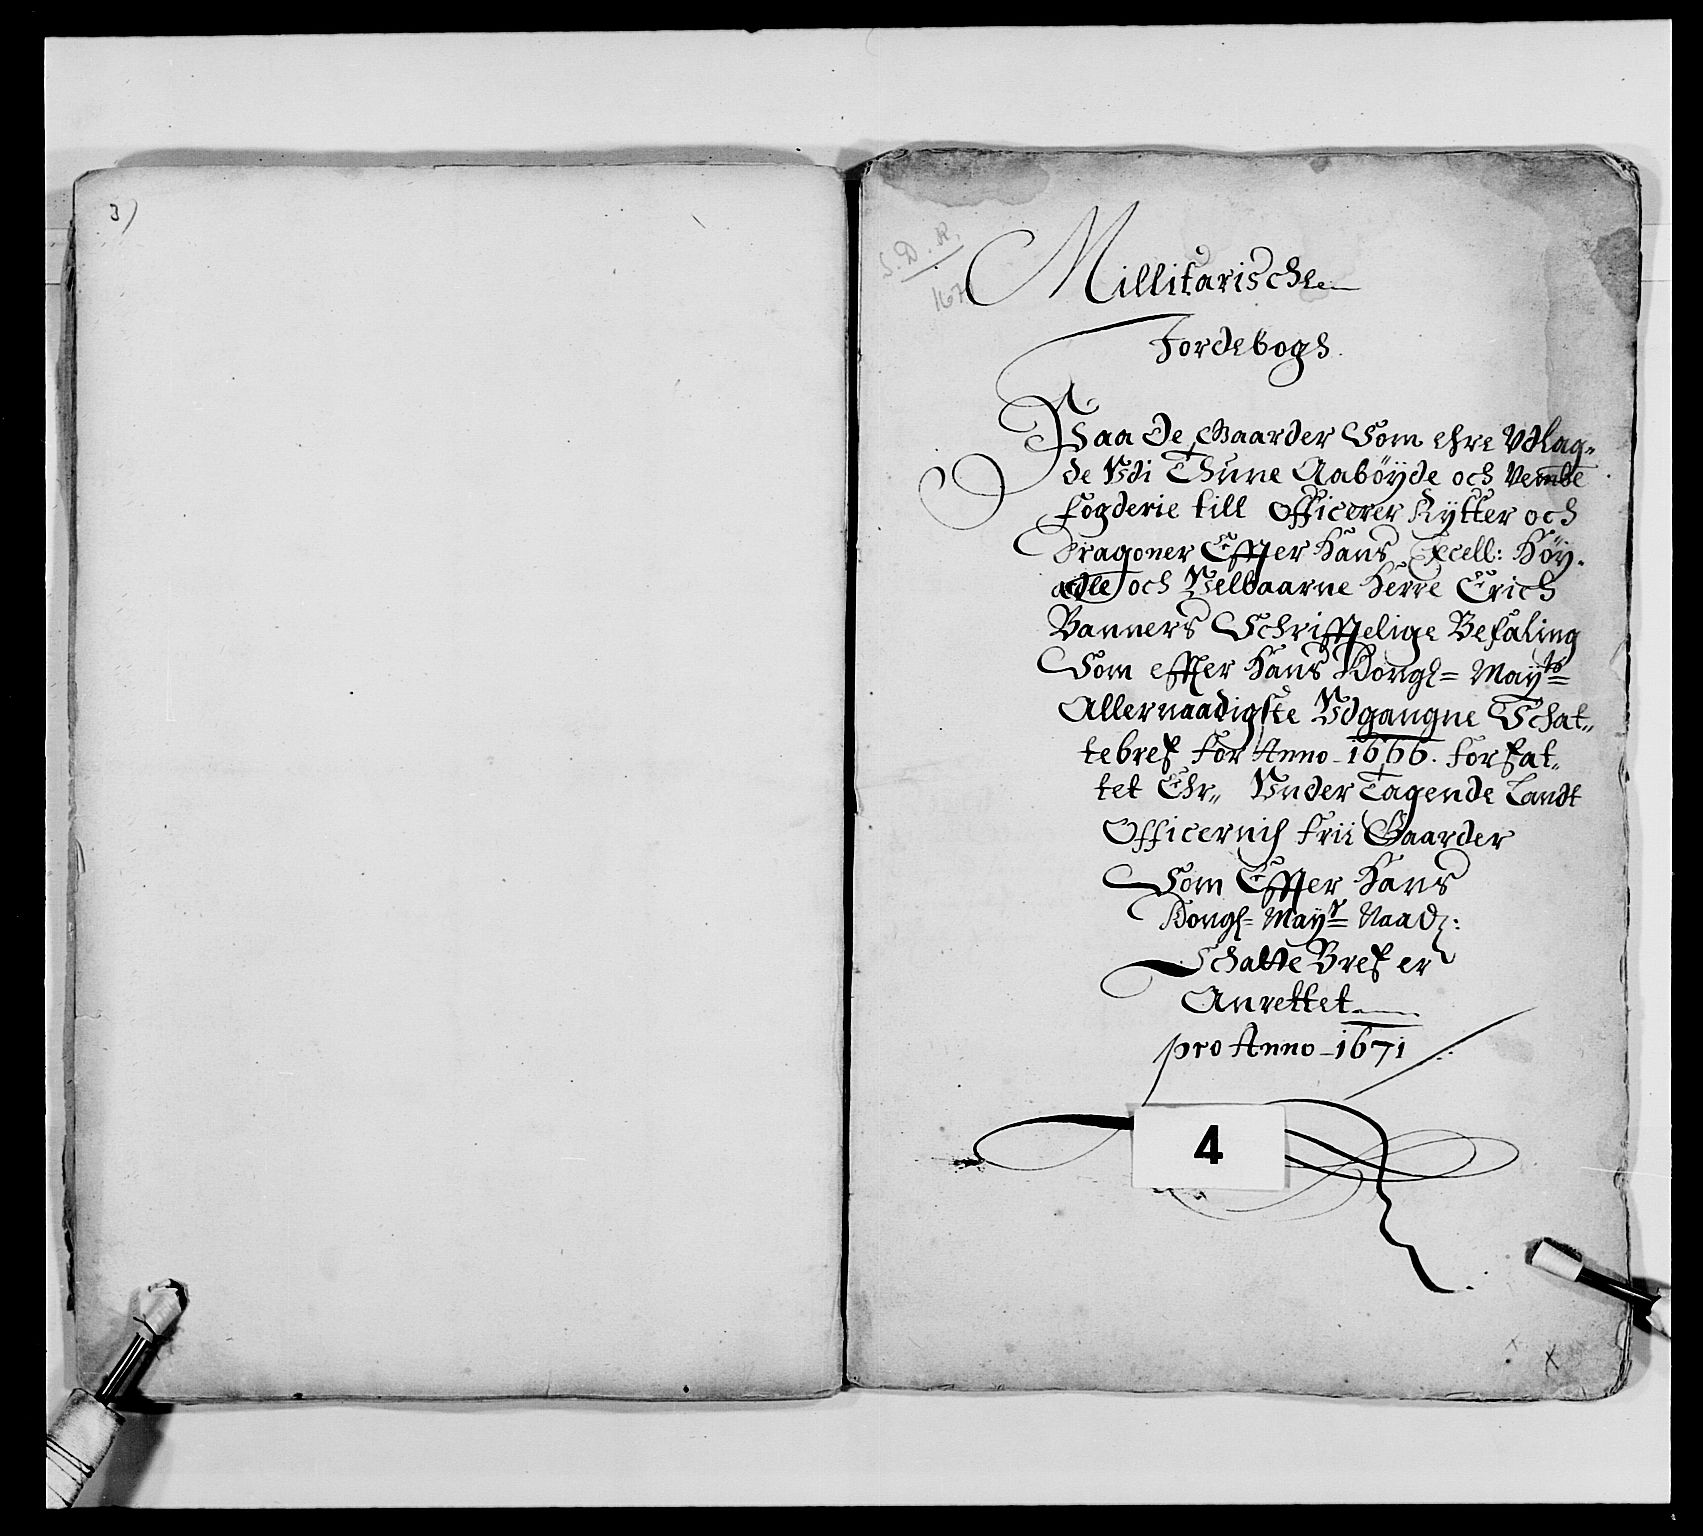 3)
S. D. R.
167
Millitarische
Jordebogh
Paa De Gaarder Som ehre Udlag-
de Udi Thune Aabøyde och Vembe
fogderie till Officerer Rytter och
Dragoner Effter Hans Excell: Höy-
edle och Velbaarne Herre Erich
Banners Schrifftelige Befaling
Som effter Hans Kongl= Mayts
Allernaadigste Udgangne Schat„
tebref for Anno 1666. forfat„
tet Ehr„ Under Tagende Landt
Officernis frii Gaarder
Som Effter Hans
Kongl= Mayt Naad:
Schatte Bref er
Anrettet
pro Anno 1671
4